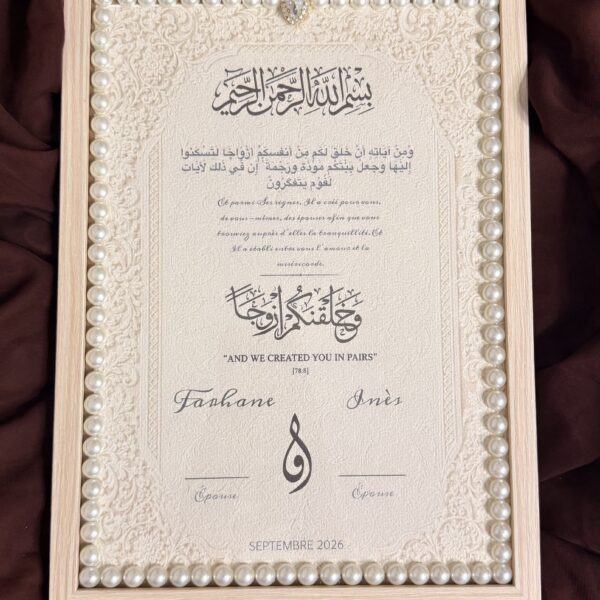 بسم الله الرحمن الرحيم
ومن آياته أن خلق لكم من أنفسكم أزواجًا لتسكنوا
إليها وجعل بينكم مودة ورحمة إن في ذلك لآيات
لقوم يتفكرون
Et parmi Ses signes, Il a créé pour vous,
de vous-mêmes, des épouses afin que vous
trouviez auprès d'elles la tranquillité. Et
Il a établi entre vous l'amour et la
miséricorde.
وخلقنكم أزوجا
"AND WE CREATED YOU IN PAIRS"
[78:8]
Farhane Inès
و
Épouse Épouse
SEPTEMBRE 2026